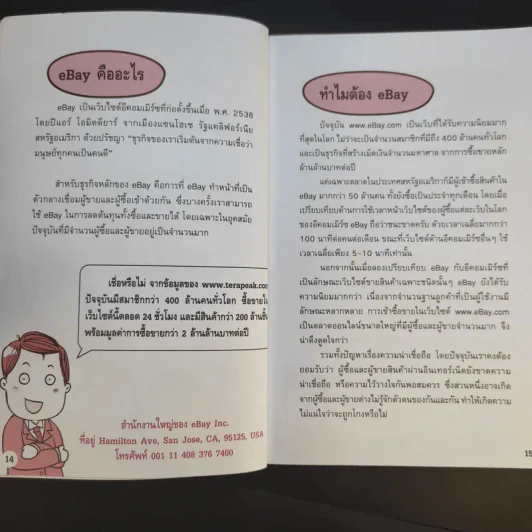 eBay คืออะไร
eBay เป็นเว็บไซต์อีคอมเมิร์ซที่ก่อตั้งขึ้นเมื่อ พ.ศ. 2538
โดยปิแอร์ โอมิดยาร์ จากเมืองแซนโฮเซ รัฐแคลิฟอร์เนีย
สหรัฐอเมริกา ด้วยปรัชญา "ธุรกิจของเราเริ่มต้นจากความเชื่อว่า
มนุษย์ทุกคนเป็นคนดี"
สำหรับธุรกิจหลักของ eBay คือการที่ eBay ทำหน้าที่เป็น
ตัวกลางเชื่อมผู้ขายและผู้ซื้อเข้าด้วยกัน ซึ่งบางครั้งเราสามารถ
ใช้ eBay ในการลดต้นทุนทั้งซื้อและขายได้ โดยเฉพาะในยุคสมัย
ปัจจุบันที่มีจำนวนผู้ซื้อและผู้ขายอยู่เป็นจำนวนมาก
เชื่อหรือไม่ จากข้อมูลของ www.terapeak.com
ปัจจุบันมีสมาชิกกว่า 400 ล้านคนทั่วโลก ซื้อขายใน
เว็บไซต์นี้ตลอด 24 ชั่วโมง และมีสินค้ากว่า 200 ล้านชิ้น
พร้อมมูลค่าการซื้อขายกว่า 2 ล้านล้านบาทต่อปี
สำนักงานใหญ่ของ eBay Inc.
ที่อยู่ Hamilton Ave, San Jose, CA, 95125, USA
โทรศัพท์ 001 11 408 376 7400
14
ทำไมต้อง eBay
ปัจจุบัน www.eBay.com เป็นเว็บที่ได้รับความนิยมมาก
ที่สุดในโลก ไม่ว่าจะเป็นจำนวนสมาชิกที่มีถึง 400 ล้านคนทั่วโลก
และเป็นธุรกิจที่สร้างเม็ดเงินจำนวนมหาศาล จากการซื้อขายหลัก
ล้านล้านบาทต่อปี
แค่เฉพาะตลาดในประเทศสหรัฐอเมริกาก็มีผู้เข้าซื้อสินค้าใน
eBay มากกว่า 50 ล้านคน ทั้งยังซื้อเป็นประจำทุกเดือน โดยเมื่อ
เปรียบเทียบด้านการใช้เวลาหน้าเว็บไซต์ของผู้ซื้อแต่ละเว็บในโลก
ของอีคอมเมิร์ซ eBay ถือว่าชนะขาดครับ ด้วยเวลาเฉลี่ยมากกว่า
100 นาทีต่อคนต่อเดือน ขณะที่เว็บไซต์ด้านอีคอมเมิร์ซอื่นๆ ใช้
เวลาเฉลี่ยเพียง 5-10 นาทีเท่านั้น
นอกจากนั้นเมื่อลองเปรียบเทียบ eBay กับอีคอมเมิร์ซที่
เป็นลักษณะเว็บไซต์ขายสินค้าเฉพาะชนิดนั้นๆ eBay ยังได้รับ
ความนิยมมากกว่า เนื่องจากจำนวนฐานลูกค้าที่เป็นผู้ใช้งานมี
ลักษณะหลากหลาย การเข้าซื้อขายในเว็บไซต์ www.eBay.com
เป็นตลาดออนไลน์ขนาดใหญ่ที่มีผู้ซื้อและผู้ขายจำนวนมาก จึง
น่าดึงดูดใจกว่า
รวมทั้งปัญหาเรื่องความน่าเชื่อถือ โดยปัจจุบันเราคงต้อง
ยอมรับว่า ผู้ซื้อและผู้ขายสินค้าผ่านอินเทอร์เน็ตยังขาดความ
น่าเชื่อถือ หรือความไว้วางใจกันพอสมควร ซึ่งส่วนหนึ่งอาจเกิด
จากผู้ซื้อและผู้ขายต่างไม่รู้จักตัวตนของกันและกัน ทำให้เกิดความ
ไม่แน่ใจว่าจะถูกโกงหรือไม่
15